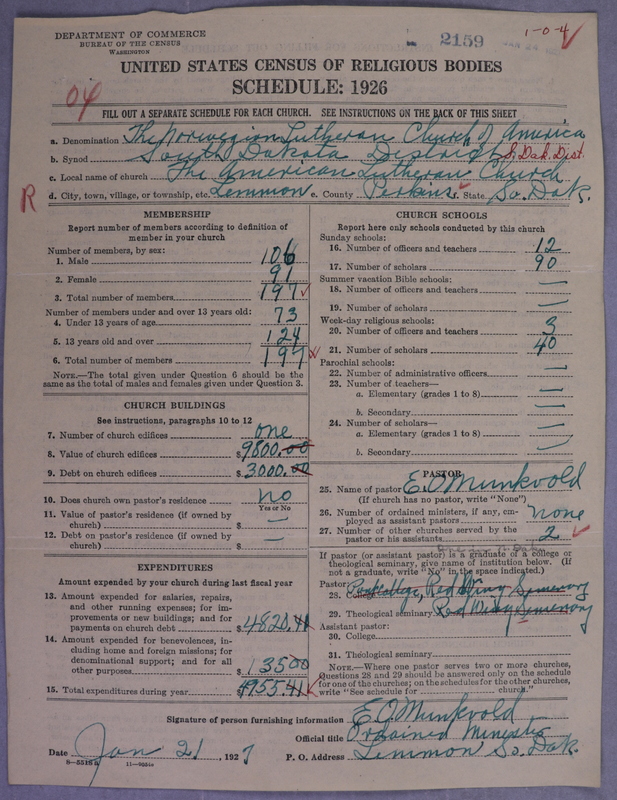 DEPARTMENT OF COMMERCE
BUREAU OF THE CENSUS
WASHINGTON
2159
1-0-4
UNITED STATES CENSUS OF RELIGIOUS BODIES
SCHEDULE: 1926
04
FILL OUT A SEPARATE SCHEDULE FOR EACH CHURCH. SEE INSTRUCTIONS ON THE BACK OF THIS SHEET
a. Denomination The Norwegian Lutheran Church of America
b. Synod South Dakota District S. Dak. Dist.
c. Local name of church The American Lutheran Church
R
d. City, town, village, or township, etc. Lemmon e. County Perkins f. State So. Dak.
MEMBERSHIP
Report number of members according to definition of
member in your church
Number of members, by sex:
1. Male 106
2. Female 91
3. Total number of members 197
Number of members under and over 13 years old:
4. Under 13 years of age 73
5. 13 years old and over 124
6. Total number of members 197
NOTE.—The total given under Question 6 should be the
same as the total of males and females given under Question 3.
CHURCH BUILDINGS
See instructions, paragraphs 10 to 12
7. Number of church edifices one
8. Value of church edifices $9800.00
9. Debt on church edifices $3000.00
10. Does church own pastor's residence no
Yes or No
11. Value of pastor's residence (if owned by
church) $ —
12. Debt on pastor's residence (if owned by
church) $ —
EXPENDITURES
Amount expended by your church during last fiscal year
13. Amount expended for salaries, repairs,
and other running expenses; for im-
provements or new buildings; and for
payments on church debt $4820.41
14. Amount expended for benevolences, in-
cluding home and foreign missions; for
denominational support; and for all
other purposes $13500
15. Total expenditures during year $4955.41
CHURCH SCHOOLS
Report here only schools conducted by this church
Sunday schools:
16. Number of officers and teachers 12
17. Number of scholars 90
Summer vacation Bible schools:
18. Number of officers and teachers —
19. Number of scholars —
Week-day religious schools:
20. Number of officers and teachers 3
21. Number of scholars 40
Parochial schools:
22. Number of administrative officers —
23. Number of teachers—
a. Elementary (grades 1 to 8) —
b. Secondary —
24. Number of scholars—
a. Elementary (grades 1 to 8) —
b. Secondary —
PASTOR
25. Name of pastor E. O. Munkvold
(If church has no pastor, write "None")
26. Number of ordained ministers, if any, em-
ployed as assistant pastors none
27. Number of other churches served by the
pastor or his assistants 2
If pastor (or assistant pastor) is a graduate of a college or
theological seminary, give name of institution below. (If
not a graduate, write "No" in the space indicated.)
Pastor:
28. College Red Wing Semenary
29. Theological seminary Red Wing Semenary
Assistant pastor:
30. College
31. Theological seminary
NOTE.—Where one pastor serves two or more churches,
Questions 28 and 29 should be answered only on the schedule
for one of the churches; on the schedules for the other churches,
write "See schedule for church."
Signature of person furnishing information E. O. Munkvold
Official title Ordained Minester
Date Jan 21, 1927 P. O. Address Lemmon So. Dak.